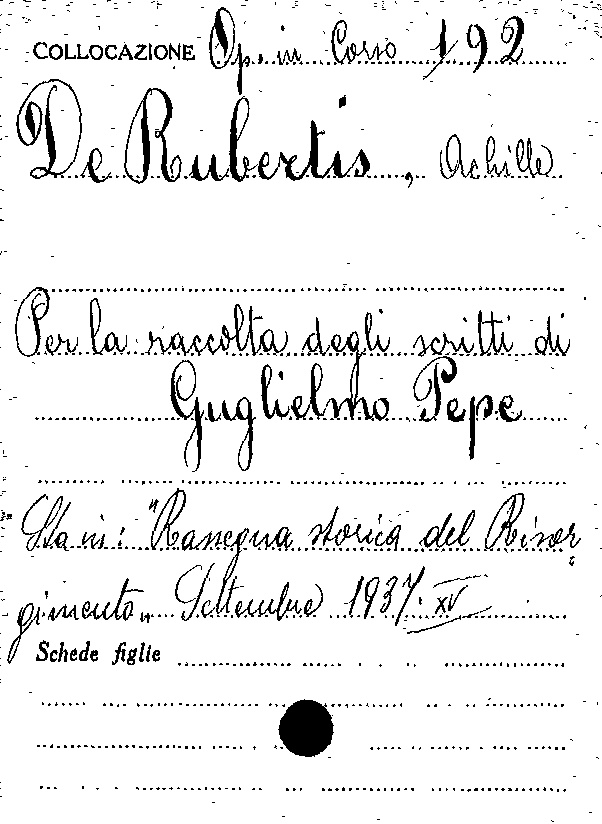 COLLOCAZIONE Op. in Corso 192
De Rubertis, Achille
Per la raccolta degli scritti di
Guglielmo Pepe
Sta in: "Rassegna storica del Risor=
gimento" Settembre 1937. XV
Schede figlie